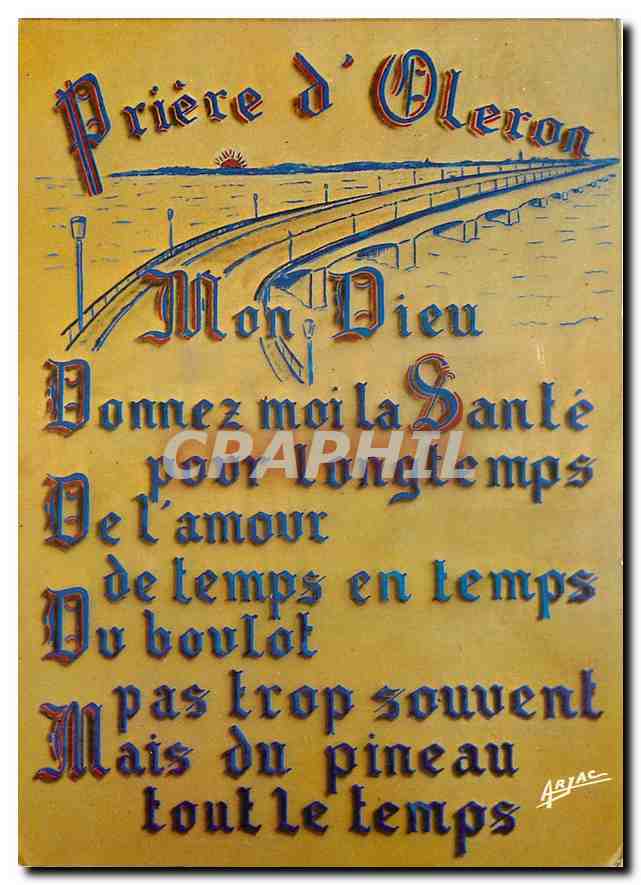 Prière d'Oleron
Mon Dieu
Donnez moi la Santé
pour longtemps
CPAPHIL
De l'amour
de temps en temps
Du boulot
pas trop souvent
Mais du pineau
tout le temps
ARJAC